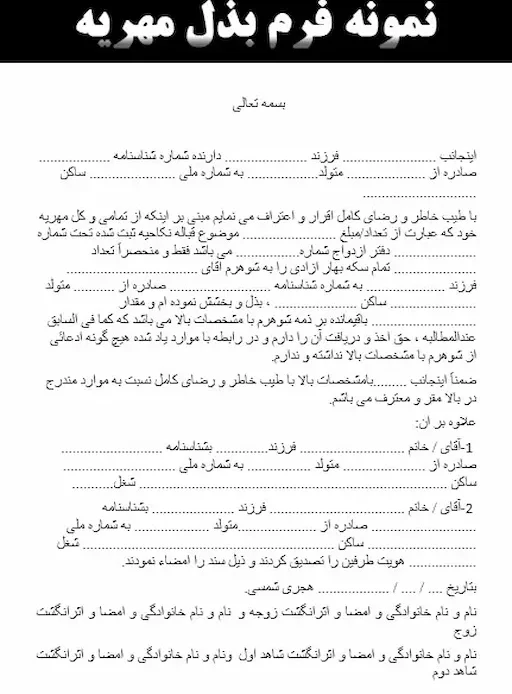 نمونه فرم بذل مهریه
بسمه تعالی
اینجانب ......................... فرزند ...................... دارنده شماره شناسنامه ...................
صادره از ..................... متولد................... به شماره ملی ....................... ساکن
..............................
با طیب خاطر و رضای کامل اقرار و اعتراف می نمایم مبنی بر اینکه از تمامی و کل مهریه
خود که عبارت از تعداد/مبلغ ......................... موضوع قباله نکاحیه ثبت شده تحت شماره
...................... دفتر ازدواج شماره................. می باشد فقط و منحصراً تعداد
...................... تمام سکه بهار آزادی را به شوهرم آقای ...................................
فرزند ..................... به شماره شناسنامه ......................... صادره از .......... متولد
....................... ساکن ...................... ، بذل و بخشش نموده ام و مقدار
............................ باقیمانده بر ذمه شوهرم با مشخصات بالا می باشد که کما فی السابق
عندالمطالبه ، حق اخذ و دریافت آن را دارم و در رابطه با موارد یاد شده هیچ گونه ادعائی
از شوهرم با مشخصات بالا نداشته و ندارم.
ضمناً اینجانب .........بامشخصات بالا با طیب خاطر و رضای کامل نسبت به موارد مندرج
در بالا مقر و معترف می باشم.
علاوه بر ان:
1-آقای / خانم ............................ فرزند.............. بشناسنامه ...........................
صادره از ...................... متولد ................. به شماره ملی .............................
ساکن ............................................................................ شغل...........
2-آقای / خانم .................................... فرزند ...................... بشناسنامه
............................ صادره از ....................متولد .................... به شماره ملی
............................. ساکن ............................................................ شغل
.................. هویت طرفین را تصدیق کردند و ذیل سند را امضاء نمودند.
بتاریخ .... / .... / ................... هجری شمسی.
نام و نام خانوادگی و امضا و اثرانگشت زوجه و نام و نام خانوادگی و امضا و اثرانگشت
زوج
نام و نام خانوادگی و امضا و اثرانگشت شاهد اول ونام و نام خانوادگی و امضا و اثرانگشت
شاهد دوم